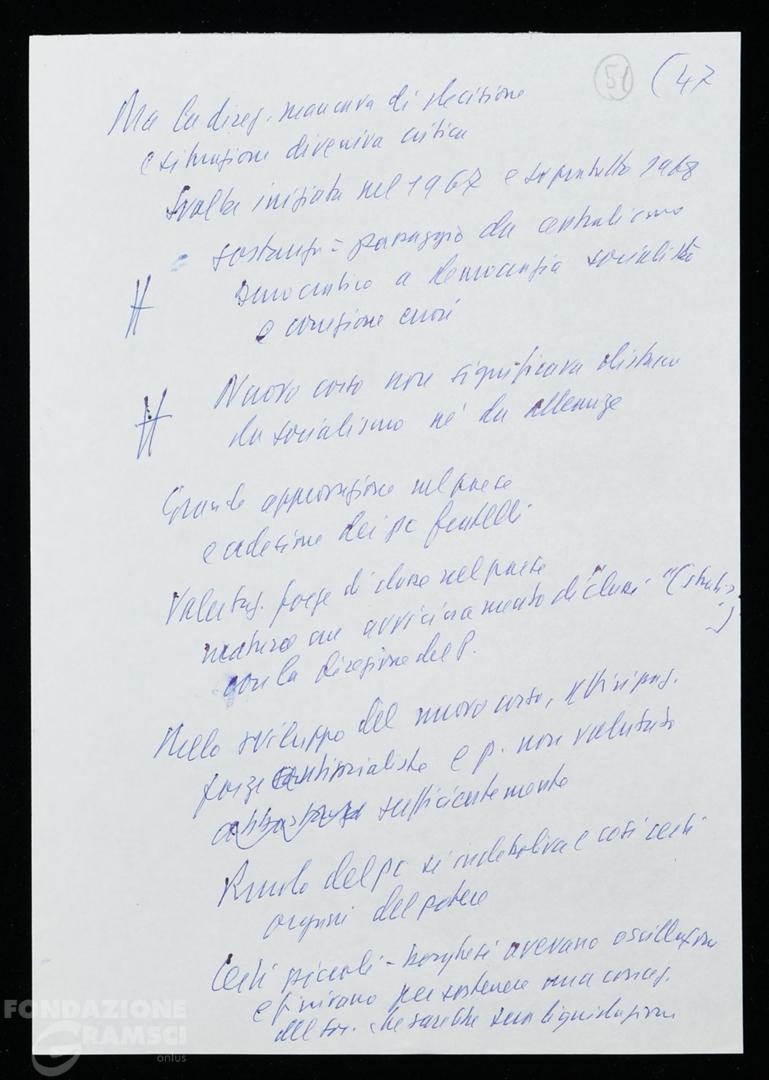 51 (47
Ma la direz. mancava di decisione
e situazione diveniva critica
Svolta iniziata nel 1967 e soprattutto 1968
sostanza = passaggio da centralismo
democratico a democrazia socialista
e correzione errori
Nuovo corso non significava distacco
da socialismo né da alleanze
Grande approvazione nel paese
e adesione dei pc fratelli
Valutaz. forze di classe nel paese
avvicinamento di classi"
con la direzione del P.
Nello sviluppo del nuovo corso,
forze antisocialiste e p. non valutato
sufficientemente
Ruolo del pc si indeboliva e così certi
organi del potere
Certi piccoli-borghesi avevano oscillazioni
e finivano per sostenere una concez.
del soc. che sarebbe sua liquidazione
FONDAZIONE
GRAMSCI
onlus